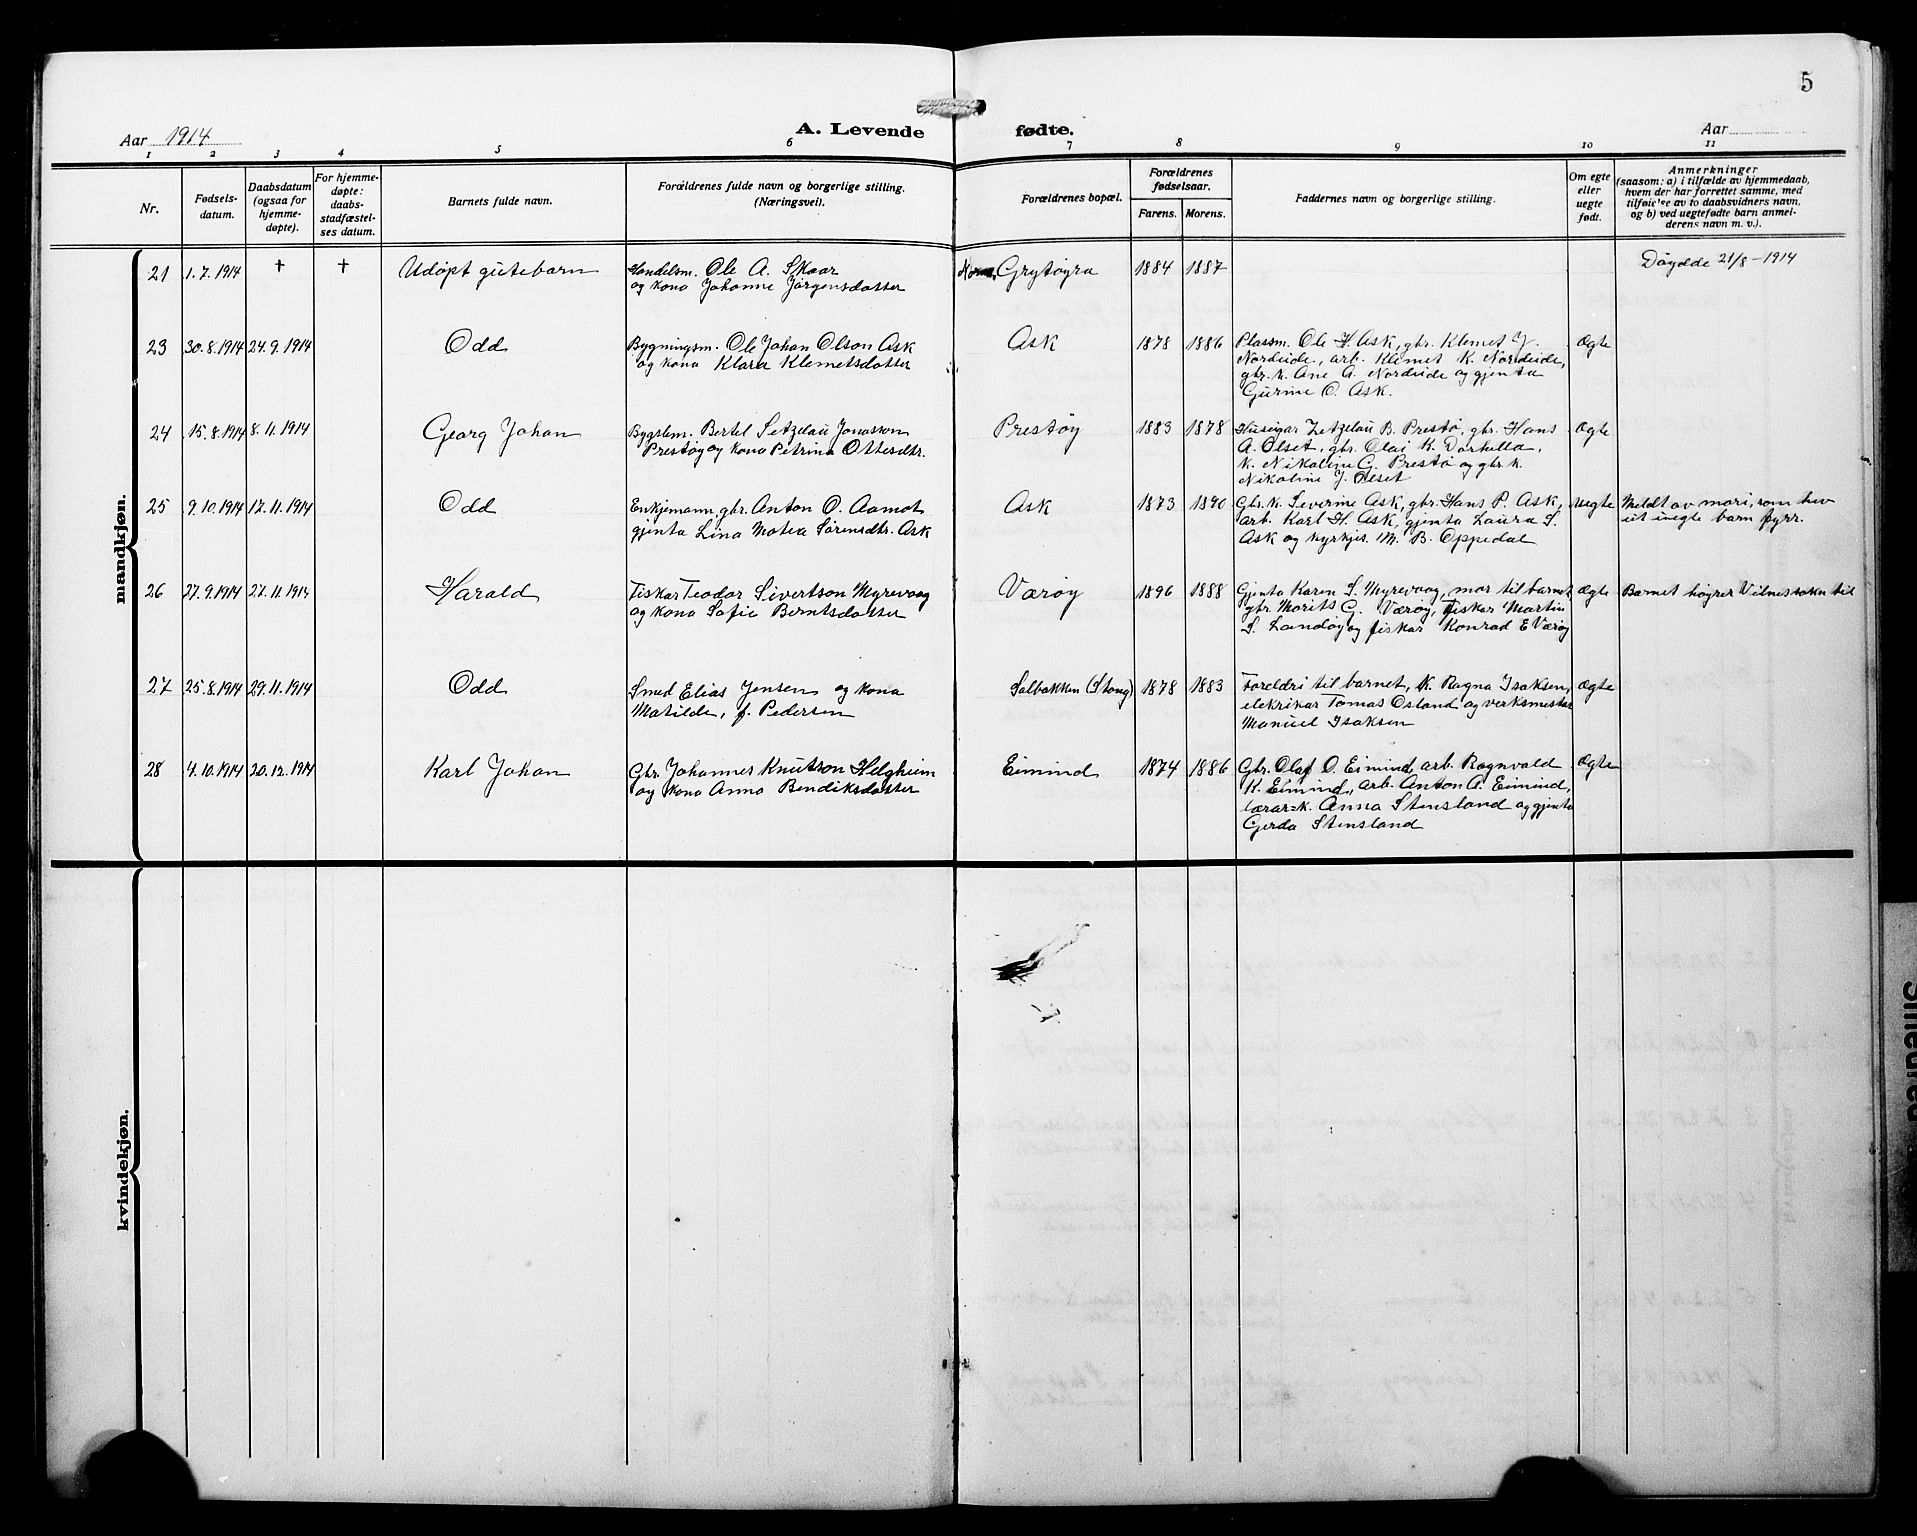 5
Aar 1914
A. Levende fødte.
Aar
1 2 3 4 5 6 7 8 9 10 11
Nr.
Fødsels-
datum.
Daabsdatum
(ogsaa for
hjemme-
døpte).
For hjemme-
døpte:
daabs-
stadfæstel-
ses datum.
Barnets fulde navn.
Forældrenes fulde navn og borgerlige stilling.
(Næringsvei).
Forældrenes bopæl.
Forældrenes
fødselsaar.
Farens. Morens.
Faddernes navn og borgerlige stilling.
Om egte
eller
uegte
født.
Anmerkninger
(saasom: a) i tilfælde av hjemmedaab,
hvem der har forrettet samme, med
tilføielse av to daabsvidners navn,
og b) ved uegtefødte barn anmel-
derens navn m. v.).
mandkjøn.
21 1.7.1914 † † Udøpt gutebarn
Handelsm. Ole A. Skaar
og kona Johanne Jørgensdotter
Grytøyra 1884 1887
Døydde 21/8-1914
23 30.8.1914 24.9.1914 Odd
Bygningsm. Ole Johan Olson Ask
og kona Klara Klemetsdotter
Ask 1878 1886
Plassm. Ole H. Ask, gbr. Klemet J.
Nordeide, arb. Klemet K. Nordeide,
gbr. k. Ane A. Nordeide og gjenta
Gurine O. Ask.
Ægte
24 15.8.1914 8.11.1914 Georg Johan
Bygslem. Bertel Setzelau Jonasson
Prestøy og kona Petrina Ottesdtr.
Prestøy 1883 1878
Huseigar Zetzelau B. Prestø, gbr. Hans
A. Olset, gbr. Olai K. Dørhella,
k. Nikoline G. Prestø og gbr. k.
Nikoline J. Olset
Ægte
25 9.10.1914 17.11.1914 Odd
Enkjemann, gbr. Anton O. Aamot
gjenta Lina Matea Sørensdtr. Ask
Ask 1873 1890
Gbr. k. Severine Ask, gbr. Hans P. Ask,
arb. Karl H. Ask, gjenta Laura S.
Ask og kyrkjes. M. B. Oppedal
uegte
Meldt av mori, som hev
eit uegte barn fyrr.
26 27.9.1914 27.11.1914 Harald
Fiskar Teodor Sivertson Myrevaag
og kona Sofie Berntsdotter
Værøy 1896 1888
Gjenta Karen S. Myrevaag, mor til barnet,
gbr. Morits G. Værøy, fiskar Martin
S. Landøy og fiskar Konrad E Værøy
Ægte
Barnet høyrer Vilnes sokn til
27 25.8.1914 29.11.1914 Odd
Smed Elias Jensen og kona
Matilde, f. Pedersen
Solbakken (Stong) 1878 1883
Foreldri til barnet, k. Ragna Isaksen,
elekrikar Tomas Osland og verksmester
Manuel Isaksen
Ægte
28 4.10.1914 20.12.1914 Karl Johan
Gbr. Johannes Knutson Helgheim
og kona Anna Bendiksdotter
Eimind 1874 1886
Gbr. Olaf O. Eimind, arb. Ragnvald
K. Eimind, arb. Anton A. Eimind,
lærar-k. Anna Stensland og gjenta
Gerda Stensland
Ægte
kvindekjøn.